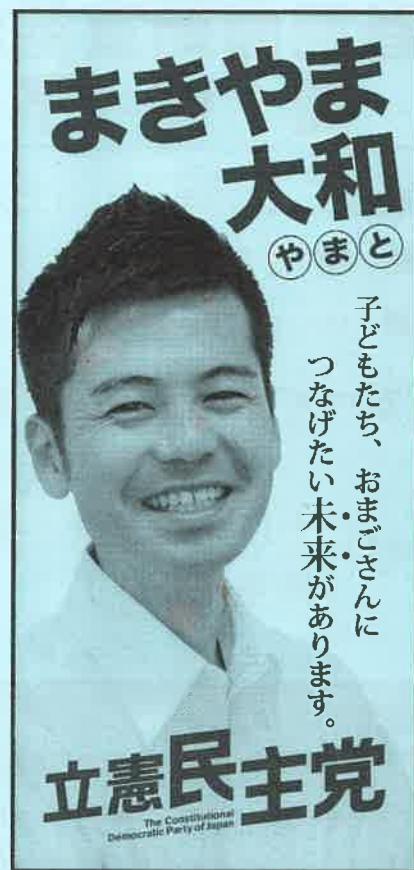 まきやま
大和
やまと
子どもたち、おまごさんに
つなげたい未来があります。
立憲民主党
The Constitutional
Democratic Party of Japan